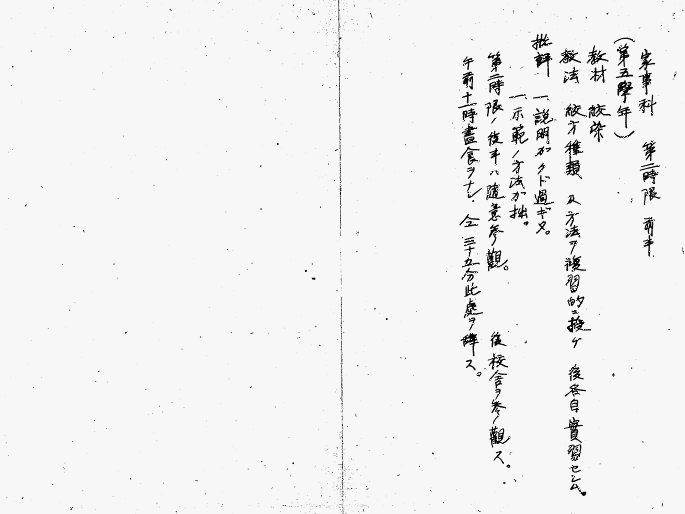 家事科　第二時限　前半
（第五學年）
教材　絞染
教法　絞方種類　及方法ヲ復習的ニ授ケ　後各自實習セシム。
批評　一、説明ガクド過ギタ。
一、示範ノ方法ガ拙。
第二時限ノ後半ハ隨意參觀。　後校舎ヲ參觀ス。
午前十一時晝食ヲナシ、仝三十五分此處ヲ辭ス。